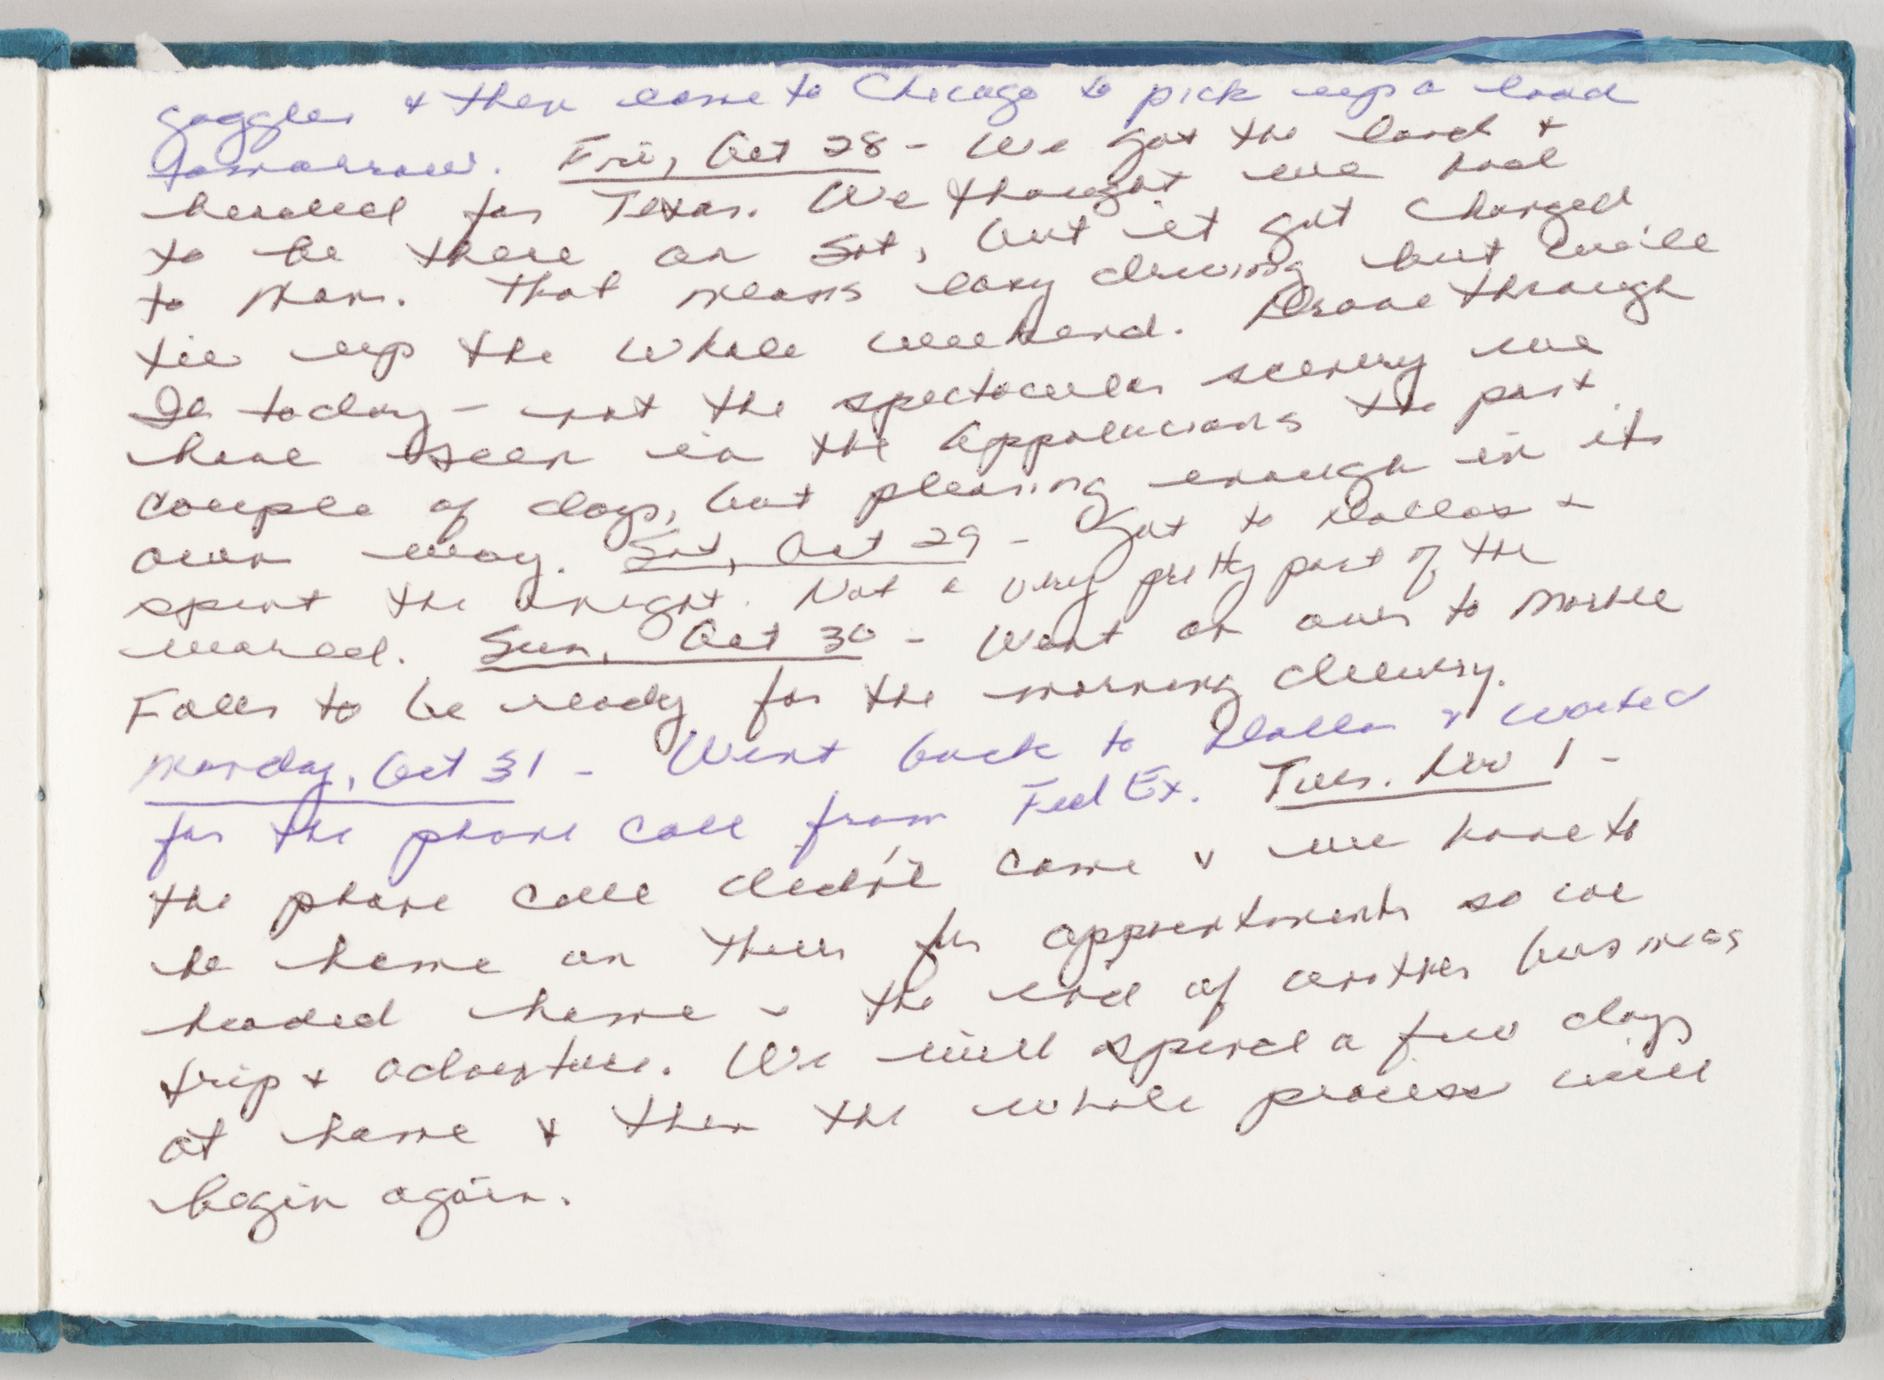 goggles & then came to Chicago to pick up a load
tomorrow. Fri, Oct 28 - We got the load &
headed for Texas. We thought we had
to be there on Sat, but it got changed
to Mon. That means easy driving but will
tie up the whole weekend. Drove through
Il today - not the spectacular scenery we
have seen in the Appalacians the past
couple of days, but pleasing enough in its
own way. Sat, Oct 29 - Got to Dallas &
spent the night. Not a very pretty part of the
world. Sun, Oct 30 - Went on over to Marble
Falls to be ready for the morning delivery.
Monday, Oct 31 - Went back to Dallas & waited
for the phone call from Fed Ex. Tues. Nov 1 -
the phone call didn't come & we have to
be home on Thur for appointments so we
headed home - the end of another business
trip & adventure. We will spend a few days
at home & then the whole process will
begin again.